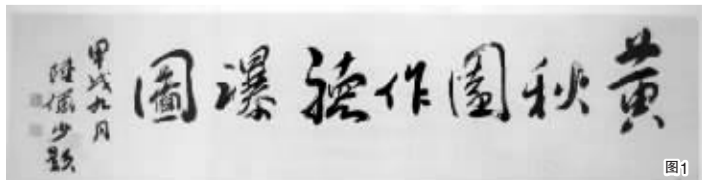 黄秋園作聽瀑圖
甲戌九月
陸儼少題
图1